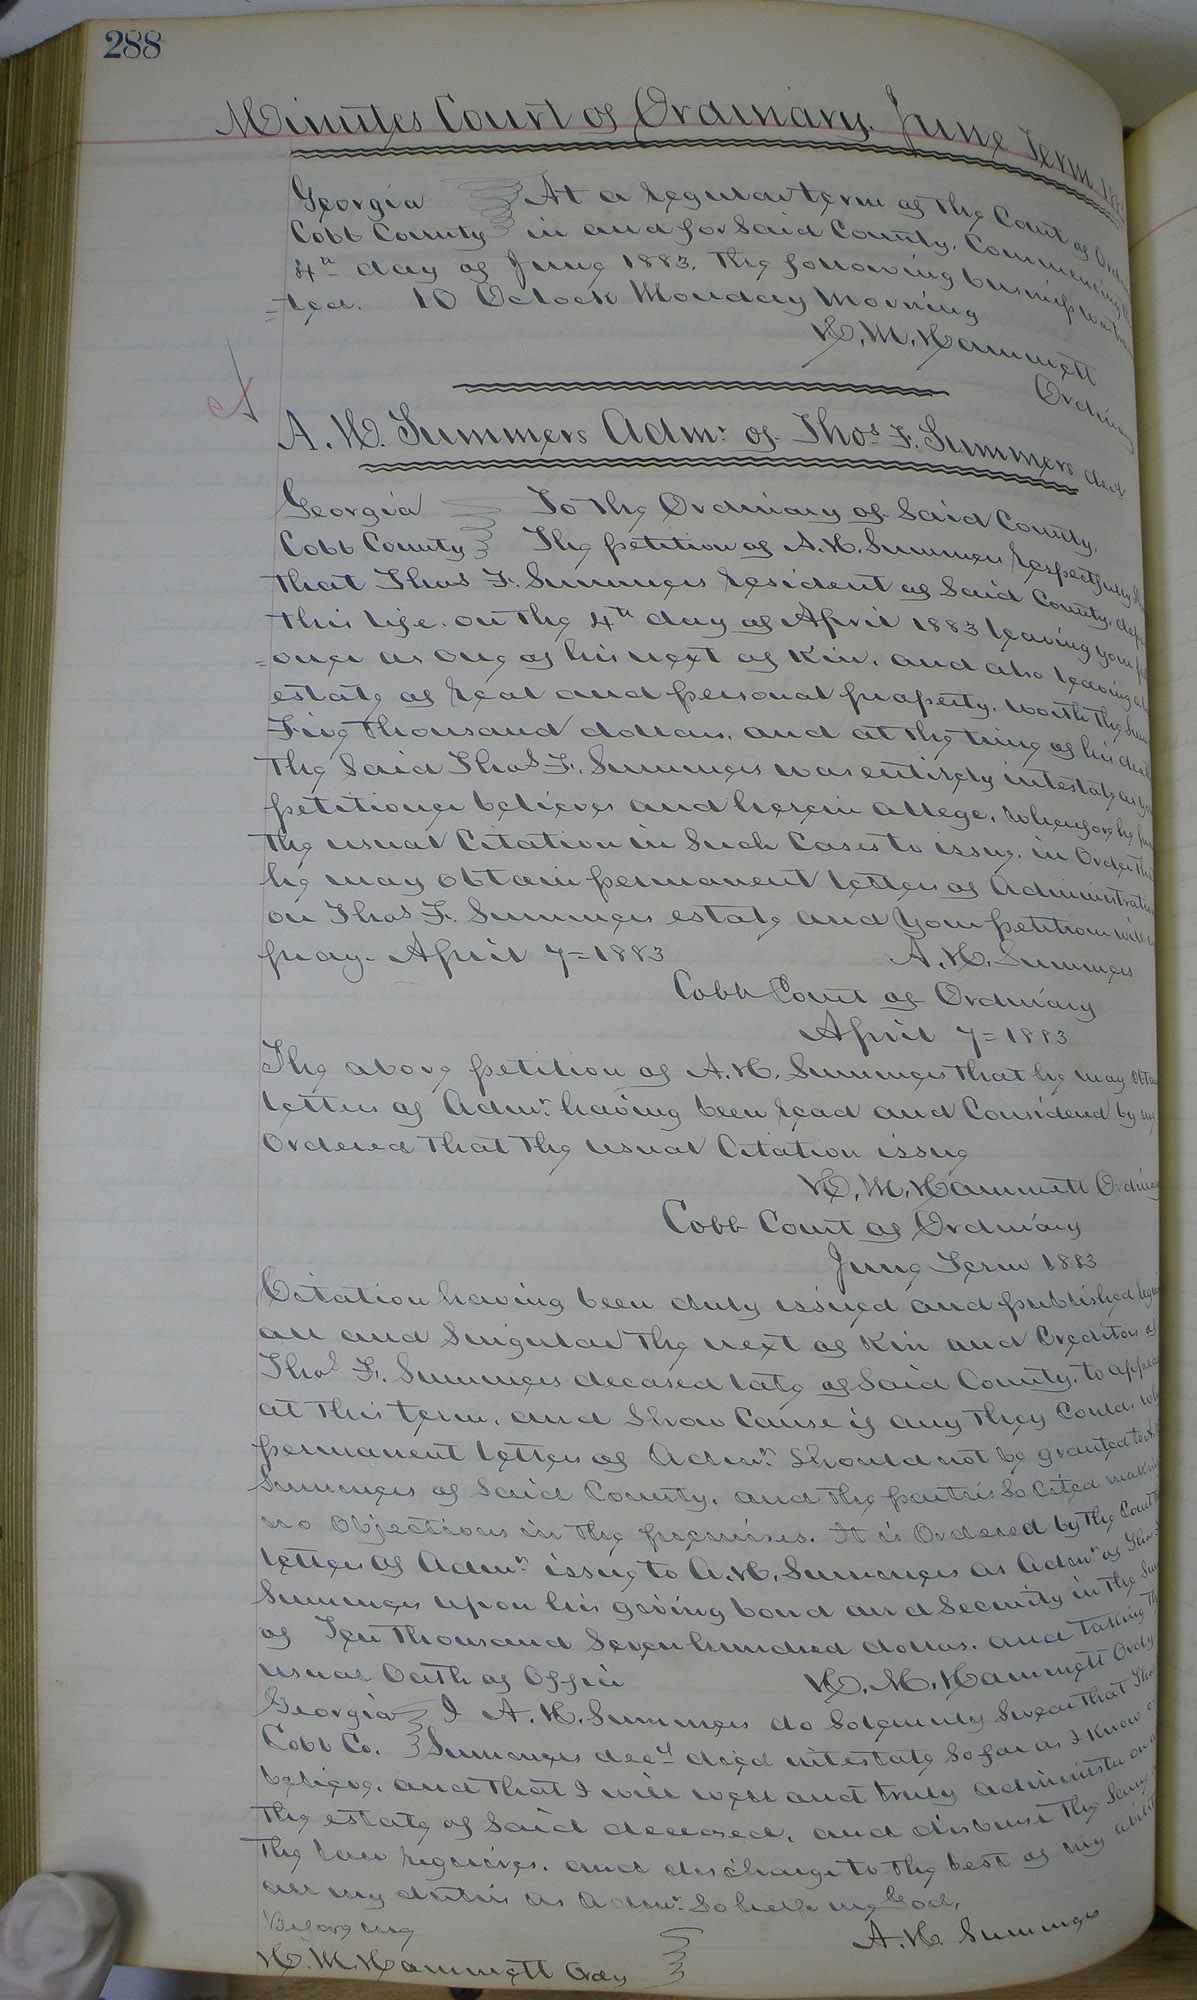 288
Minutes Court of Ordinary. June Term 188
Georgia At a regular term of the Court of Ord
Cobb County in and for Said County, Commencing
4th day of June 1883, the following business was
=ted. 10 Oclock Monday Morning
H. M. Hammett
Ordinary
A. H. Summers Adm.r of Thos F. Summers decd
Georgia To the Ordinary of Said County.
Cobb County The petition of A. H. Summers Respectfully
that Thos F. Summers resident of Said County, dep
this life on the 4th day of April 1883 leaving your pe
=oner as one of his next of Kin, and also leaving
estate of real and personal property, worth the Sum
Five thousand dollars, and at the time of his death
the Said Thos F. Summers was entirely intestate as
petitioner believes and herein allege, Wherefore he
the usual Citation in Such Cases to issue in Order th
he may obtain permanent letters of Administration
on Thos F. Summers estate and your petitioner will
pray. April 7=1883 A. H. Summers
Cobb Court of Ordinary
April 7=1883
The above petition of A. H. Summers that he may obta
letters of Admr. having been read and Considered by me
Ordered that the usual Citation issue
H. M. Hammett Ordinary
Cobb Court of Ordinary
June Term 1883
Citation having been duly issued and published
all and Singular the next of Kin and Creditors of
Thos F. Summers deceased late of Said County, to appear
at this term, and Show Cause if any they Could, wh
permanent letters of Admn. Should not be granted to A.
Summers of Said County, and the parties So Cited making
no objections in the premises. It is Ordered by the Court
letters of Admn. issue to A. H. Summers as Admr of Thos
Summers upon his giving bond and Security in the Sum
of Ten thousand Seven hundred dollars. and taking the
usual Oath of Office H. M. Hammett Ordy
Georgia I A. H. Summers do Solemnly Swear that Thos
Cobb Co. Summers decd died intestate So far as I Know or
believe, and that I will well and truly administer on
the estate of Said deceased, and disburse the Same
the law requires, and discharge to the best of my abilit
all my duties as Admr. So help me God.
Before me A. H. Summers
H. M. Hammett Ordy